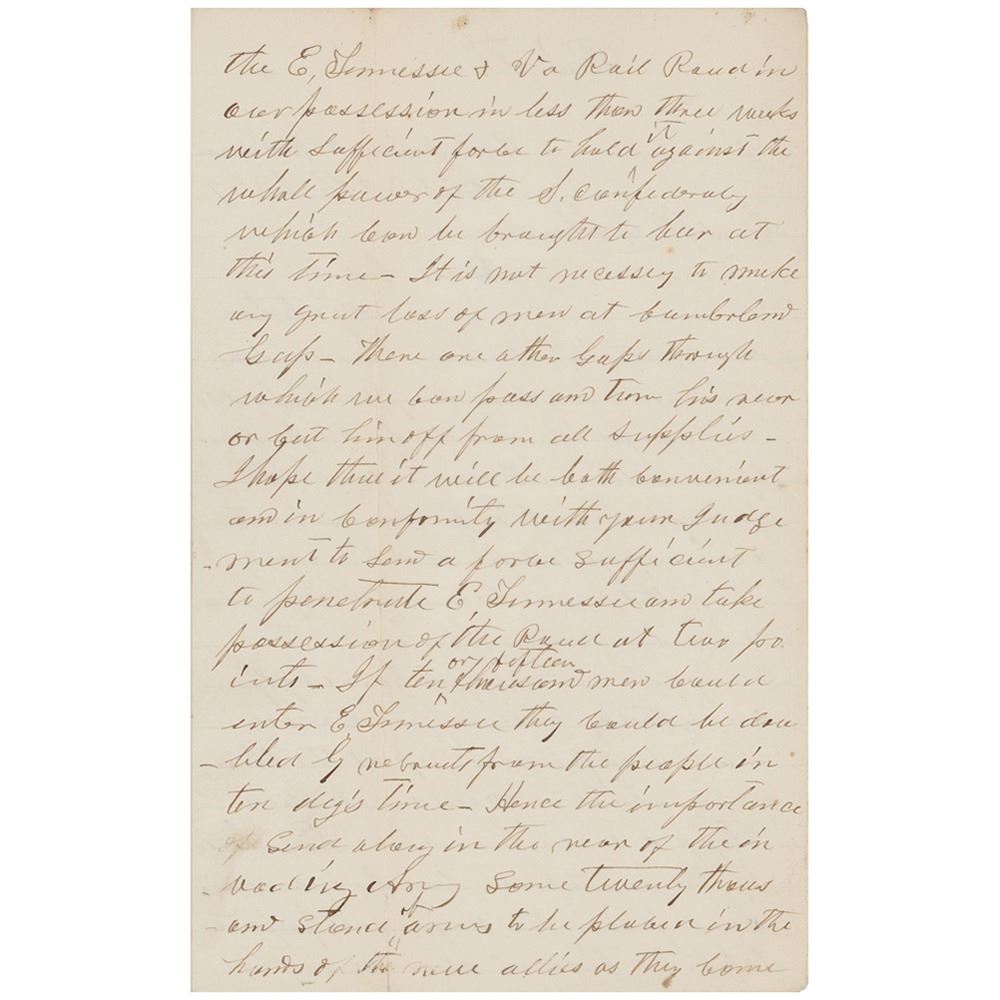 the E, Tennessee & Va Rail Road in
our possession in less than three weeks
with sufficient force to hold it against the
whole power of the S. Confederacy
which can be brought to bear at
this time – It is not necessey to make
any great loss of men at Cumberland
Gap – There are other Gaps through
which we can pass and turn his rear
or cut him off from all supplies –
I hope that it will be both convenient
and in conformity with your Judge
-ment to send a force sufficient
to penetrate E, Tennessee and take
possession of the Road at two po
ints – If ten or fifteen thousand men could
enter E, Tennessee they could be dou
-bled by recruits from the people in
ten day's time – Hence the importance
of send along in the rear of the in
-vading Army some twenty thous
-and stand of arms to be placed in the
hands of the new allies as they come